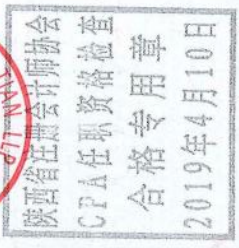 陕西省注册会计师协会
CPA任职资格检查
合格专用章
2019年4月10日
TAN LLP